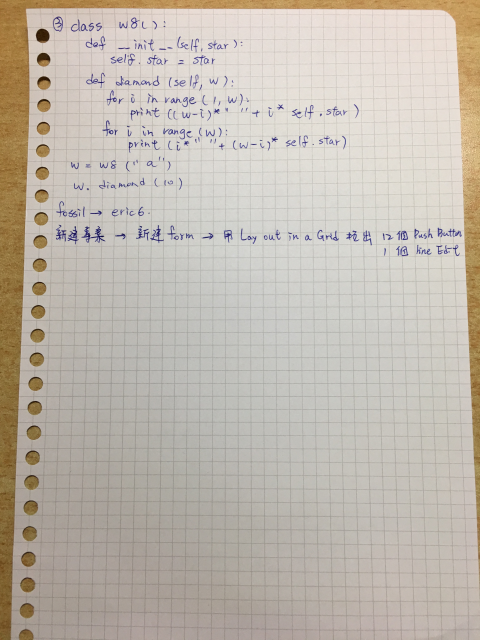 ③ class w8():
def __init__(self, star):
self.star = star
def diamond (self, w):
for i in range (1, w):
print ((w-i)*" " + i* self.star)
for i in range (w):
print (i*" " + (w-i)* self.star)
w = w8 ("a")
w. diamond (10)
fossil → eric6.
新建專案 → 新建 form → 用 Lay out in a Grid 拉出 12個 Push Button
1 個 line Edit